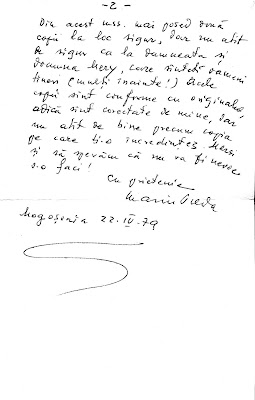 -2-
Din acest mss. mai posed două
copii la loc sigur, dar nu atît
de sigur ca la dumneata și
doamna Mery, care sînteți oameni
tineri (mulți înainte!) Acele
copii sînt conforme cu originalul,
adică sînt corectate de mine, dar
nu atît de bine precum copia
pe care ți-o încredințez. Mersi
și să sperăm că nu va fi nevoie
s-o faci!
Cu prietenie
Marin Preda
Mogoșoaia 22.IV.79